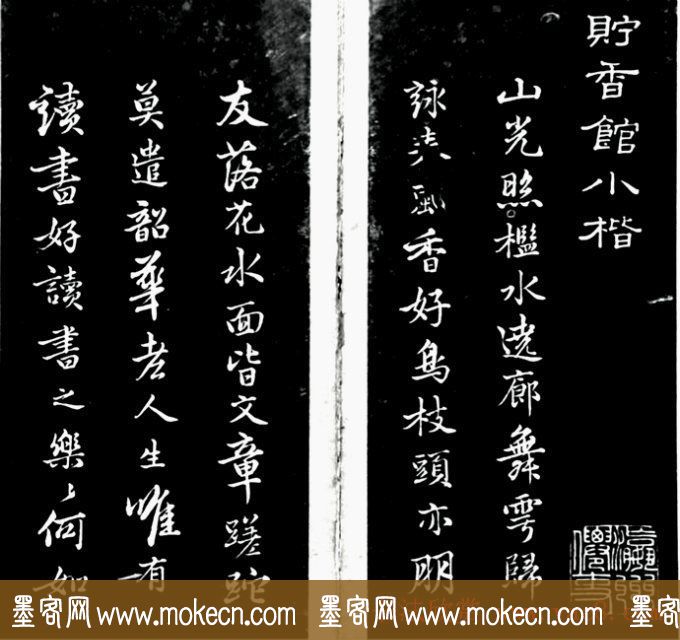 貯香館小楷
山光照檻水遶廊舞雩歸
詠春風香好鳥枝頭亦朋
友落花水面皆文章蹉跎
莫遣韶華老人生唯有
讀書好讀書之樂〻何如
墨客网 www.mokecn.com 墨客网 www.mokecn.com 墨